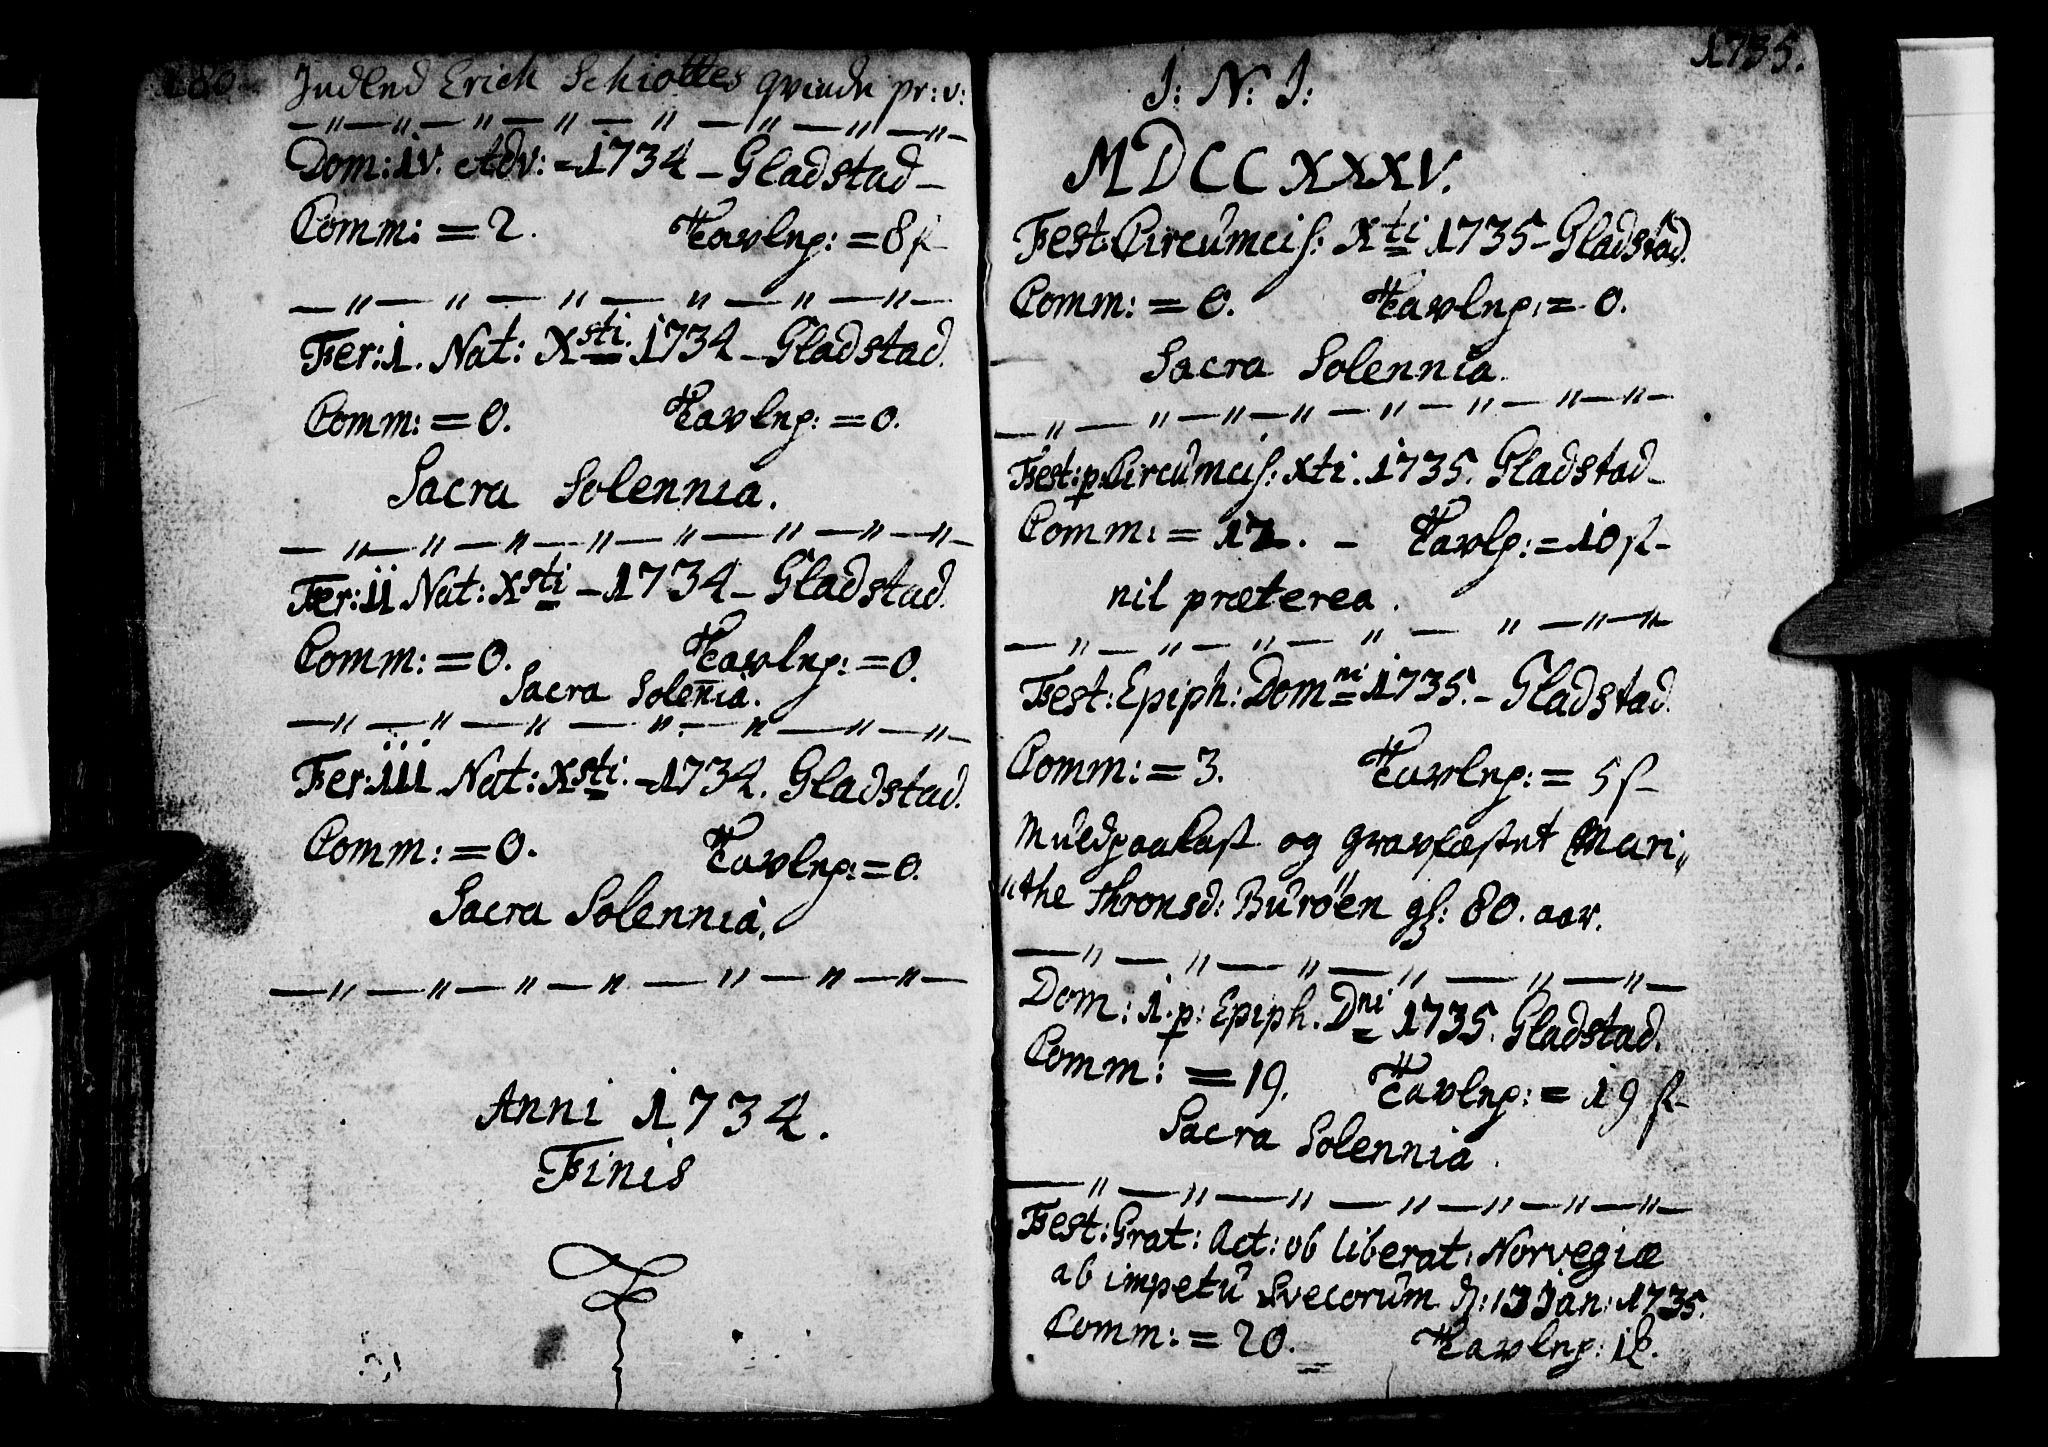 180.
Indled Erich Schiøttes qvinde pr: v:
Dom: iv. Adv: = 1734 - Gladstad -
Comm: = 2. Tavlng: = 8 s
Fer: 1. Nat: Xsti. 1734 - Gladstad.
Comm: = 0. Tavlng: = 0.
Sacra Solennia.
Fer: II Nat: Xsti - 1734 - Gladstad.
Comm: = 0. Tavlng: = 0.
Sacra Soleñia.
Fer: III Nat: Xsti. - 1734. Gladstad.
Comm: = 0. Tavlng: = 0.
Sacra Solennia.
Anni 1734.
Finis
1735.
J: N: J:
MDCCXXXV.
Fest Circumcis: Xti 1735 - Gladstad.
Comm: = 0. Tavlng: = 0.
Sacra Solennia.
Fest: p: Circumcis: xti. 1735. Gladstad -
Comm: = 12. - Tavlg: = 10 s -
nil præterea.
Fest: Epiph: Domni 1735. - Gladstad.
Comm: = 3. Tavlng: = 5 s -
Muldpaakast og gravfæstet Mari„
„the Thronsd: Buröen gl: 80. aar.
Dom: 1. p: Epiph. Dni 1735. Gladstad.
Comm: = 19. Tavlng: = 19 s -
Sacra Solennia.
Fest: Grat: Act: ob liberat: Norvegiæ
ab impetu Svecorum Jan: 1735.
Comm: = 20. Tavlng: